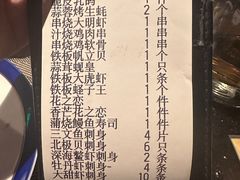 蒜蓉烤生蚝 2 个
串烧大明虾 1 串
汁烧鸡肉串 1 串
串烧鸡软骨 1 串
铁板帆立贝 1 个
蒜茸蚬皇 1 只
铁板大虎虾 1 条
铁板蛏子王 1 条
花之恋 1 个
香芒花之恋 1 件
蒲烧鳗鱼寿司 1 件
三文鱼刺身 4 片
北极贝刺身 6 只
深海鳌虾刺身 2 条
牡丹虾刺身 4 条
大甜虾刺身 10 条